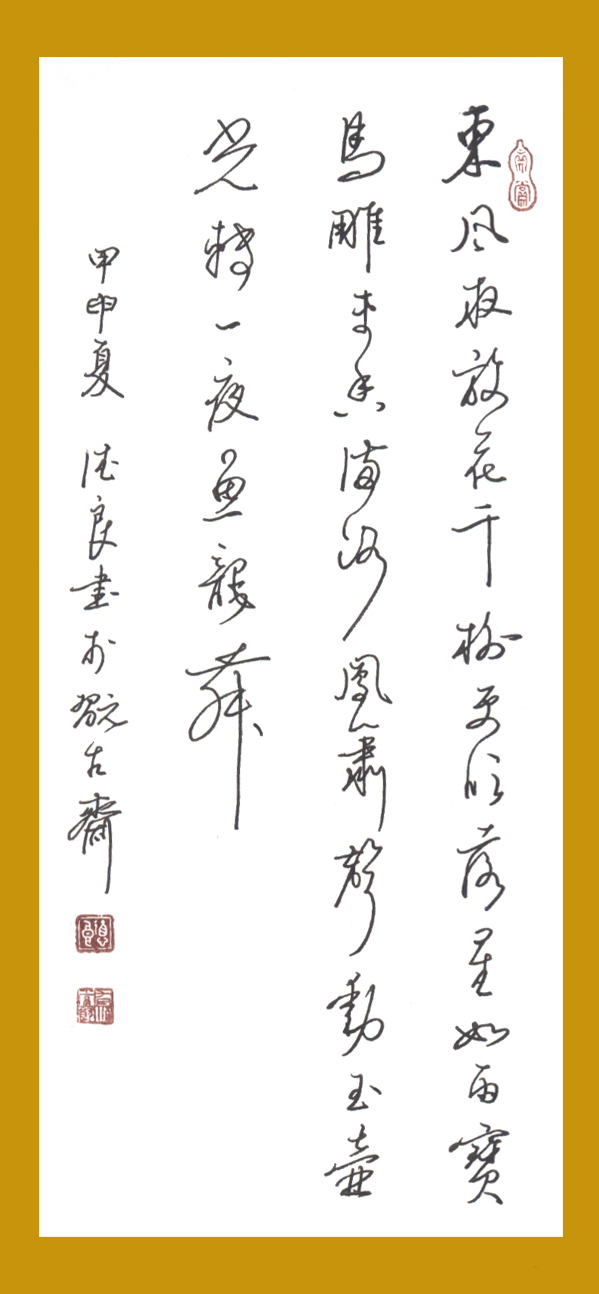 東風夜放花千樹更吹落星如雨寶
馬雕車香滿路鳳簫聲動玉壺
光轉一夜魚龍舞
甲申夏 德良書於翫古齋